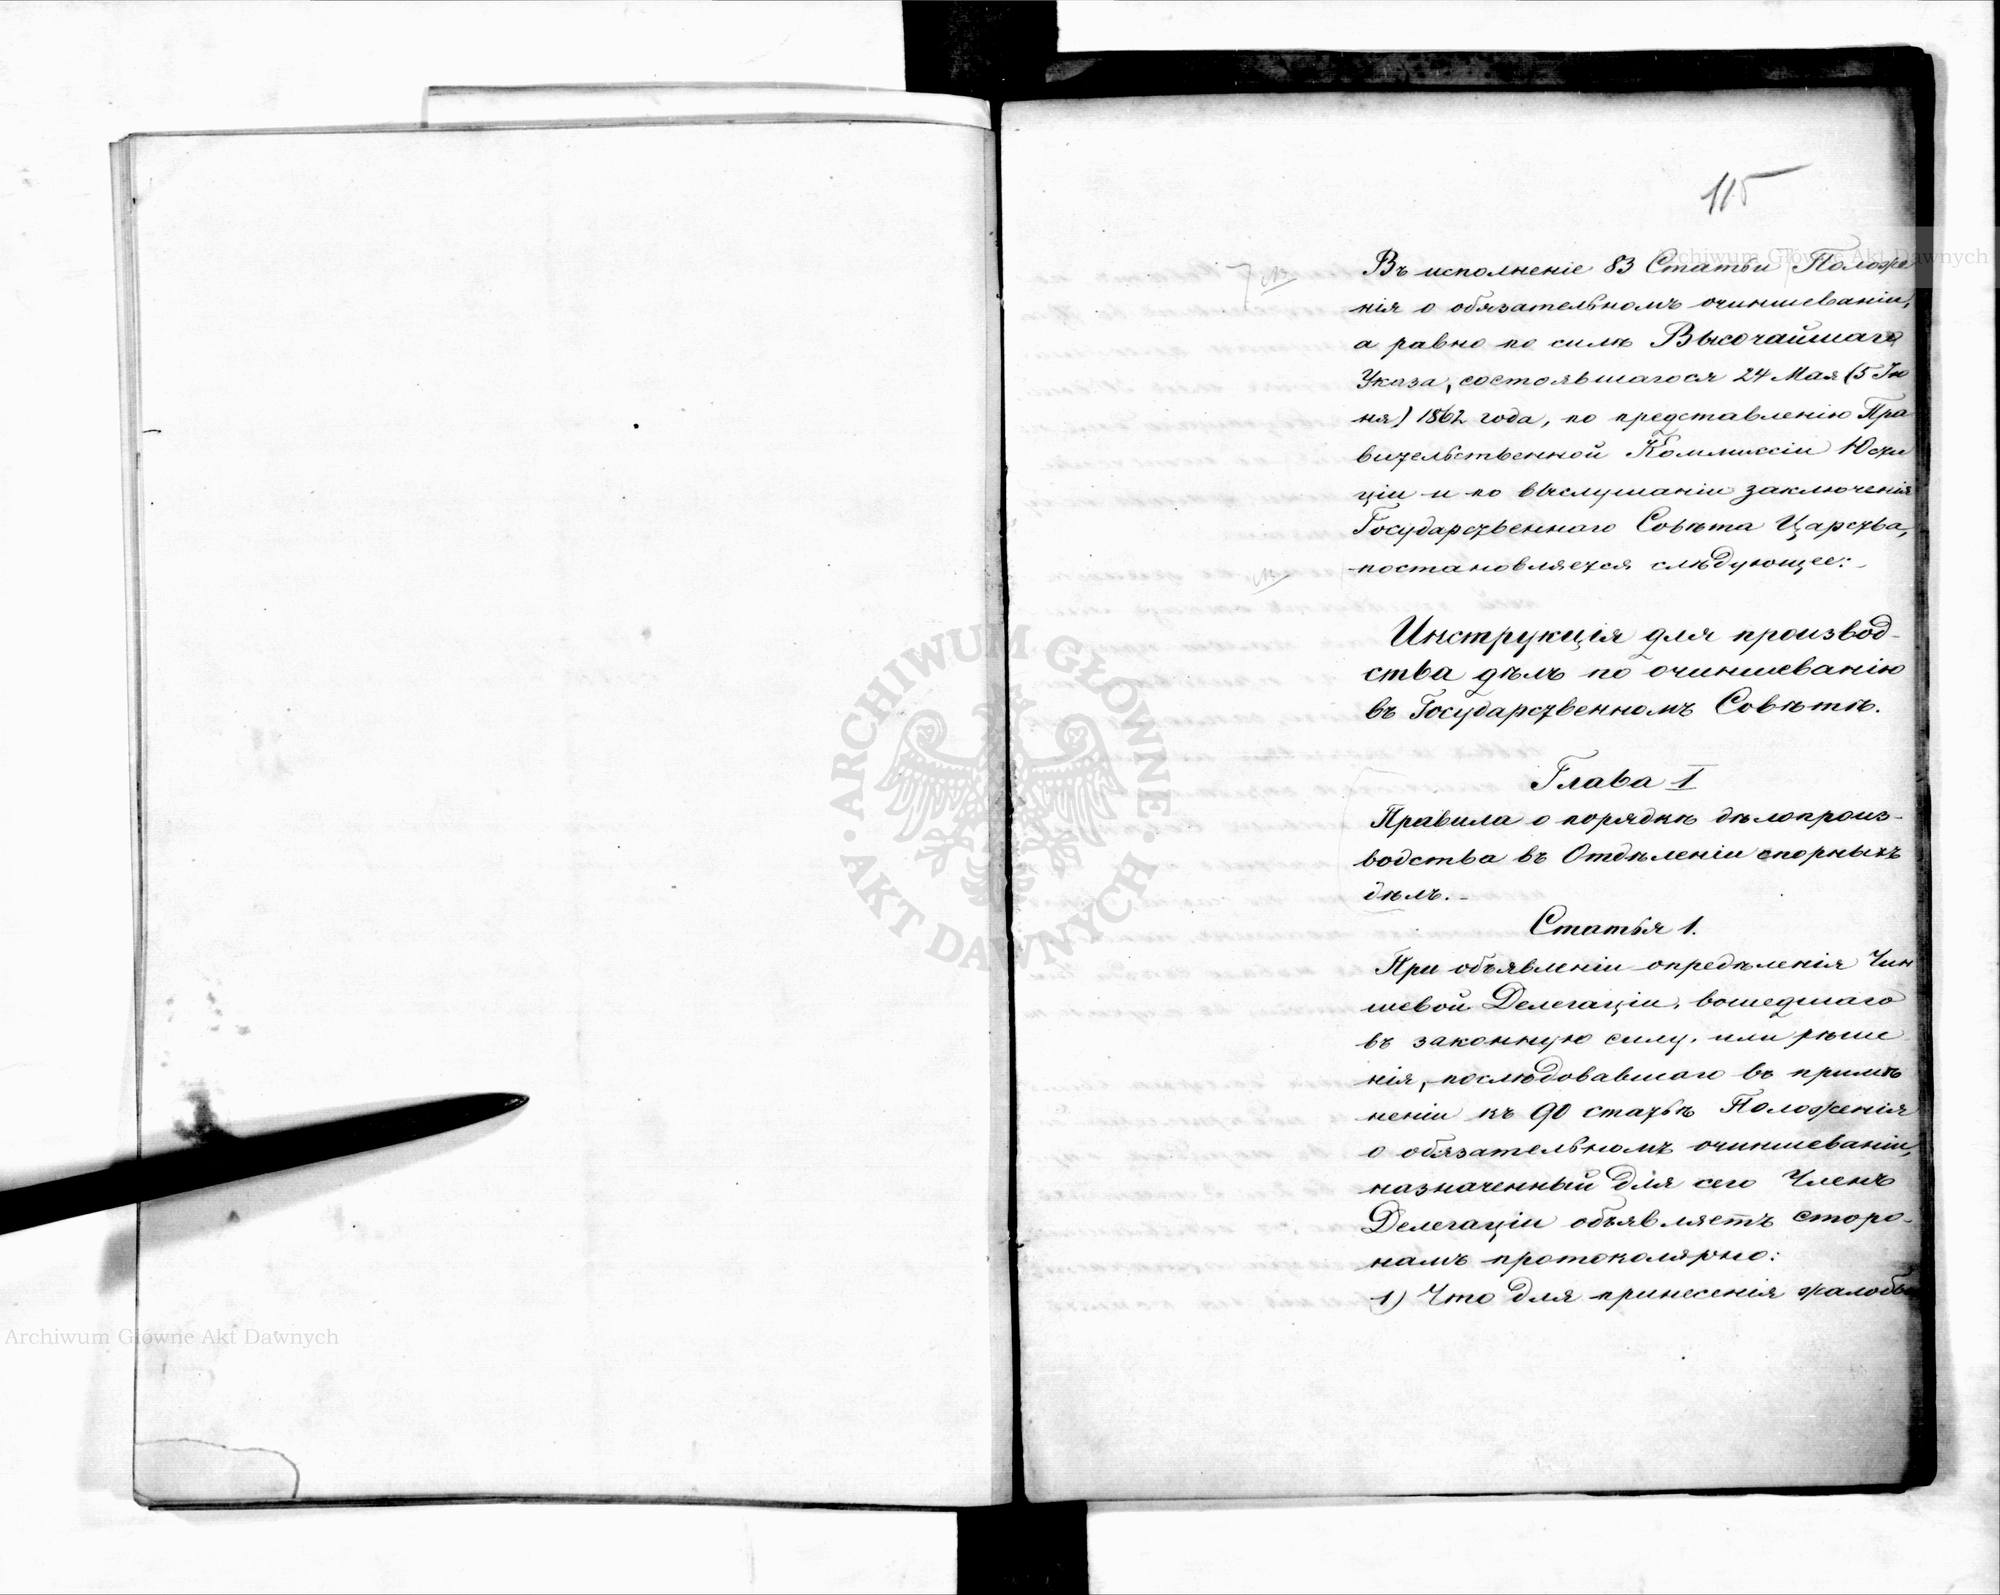 115
Въ исполненіе 83 Статьи Положе
нія о обязательномъ очиншеваніи,
а равно по силѣ Высочайшаго
Указа, состоявшагося 24 Мая (5 Ію
ня) 1862 года, по представленію Пра
вительственной Коммиссіи Юсти
ціи и по выслушаніи заключенія
Государственнаго Совѣта Царства,
постановляется слѣдующее:
Инструкція для производ-
ства дѣлъ по очиншеванію
въ Государственномъ Совѣтѣ.
Глава I
Правила о порядкѣ дѣлопроиз-
водства въ Отдѣленіи спорныхъ
дѣлъ.-
Статья 1.
При объявленіи опредѣленія Чин
шевой Делегаціи, вошедшаго
въ законную силу, или рѣше
нія, послѣдовавшаго въ примѣ
неніи къ 90 статьѣ Положенія
о обязательномъ очиншеваніи,
назначенный для сего Членъ
Делегаціи объявляетъ сторо-
намъ протоколярно:
1) Что для принесенія жалобы
Archiwum Główne Akt Dawnych
ARCHIWUM GŁÓWNE
AKT DAWNYCH
Archiwum Główne Akt Dawnych